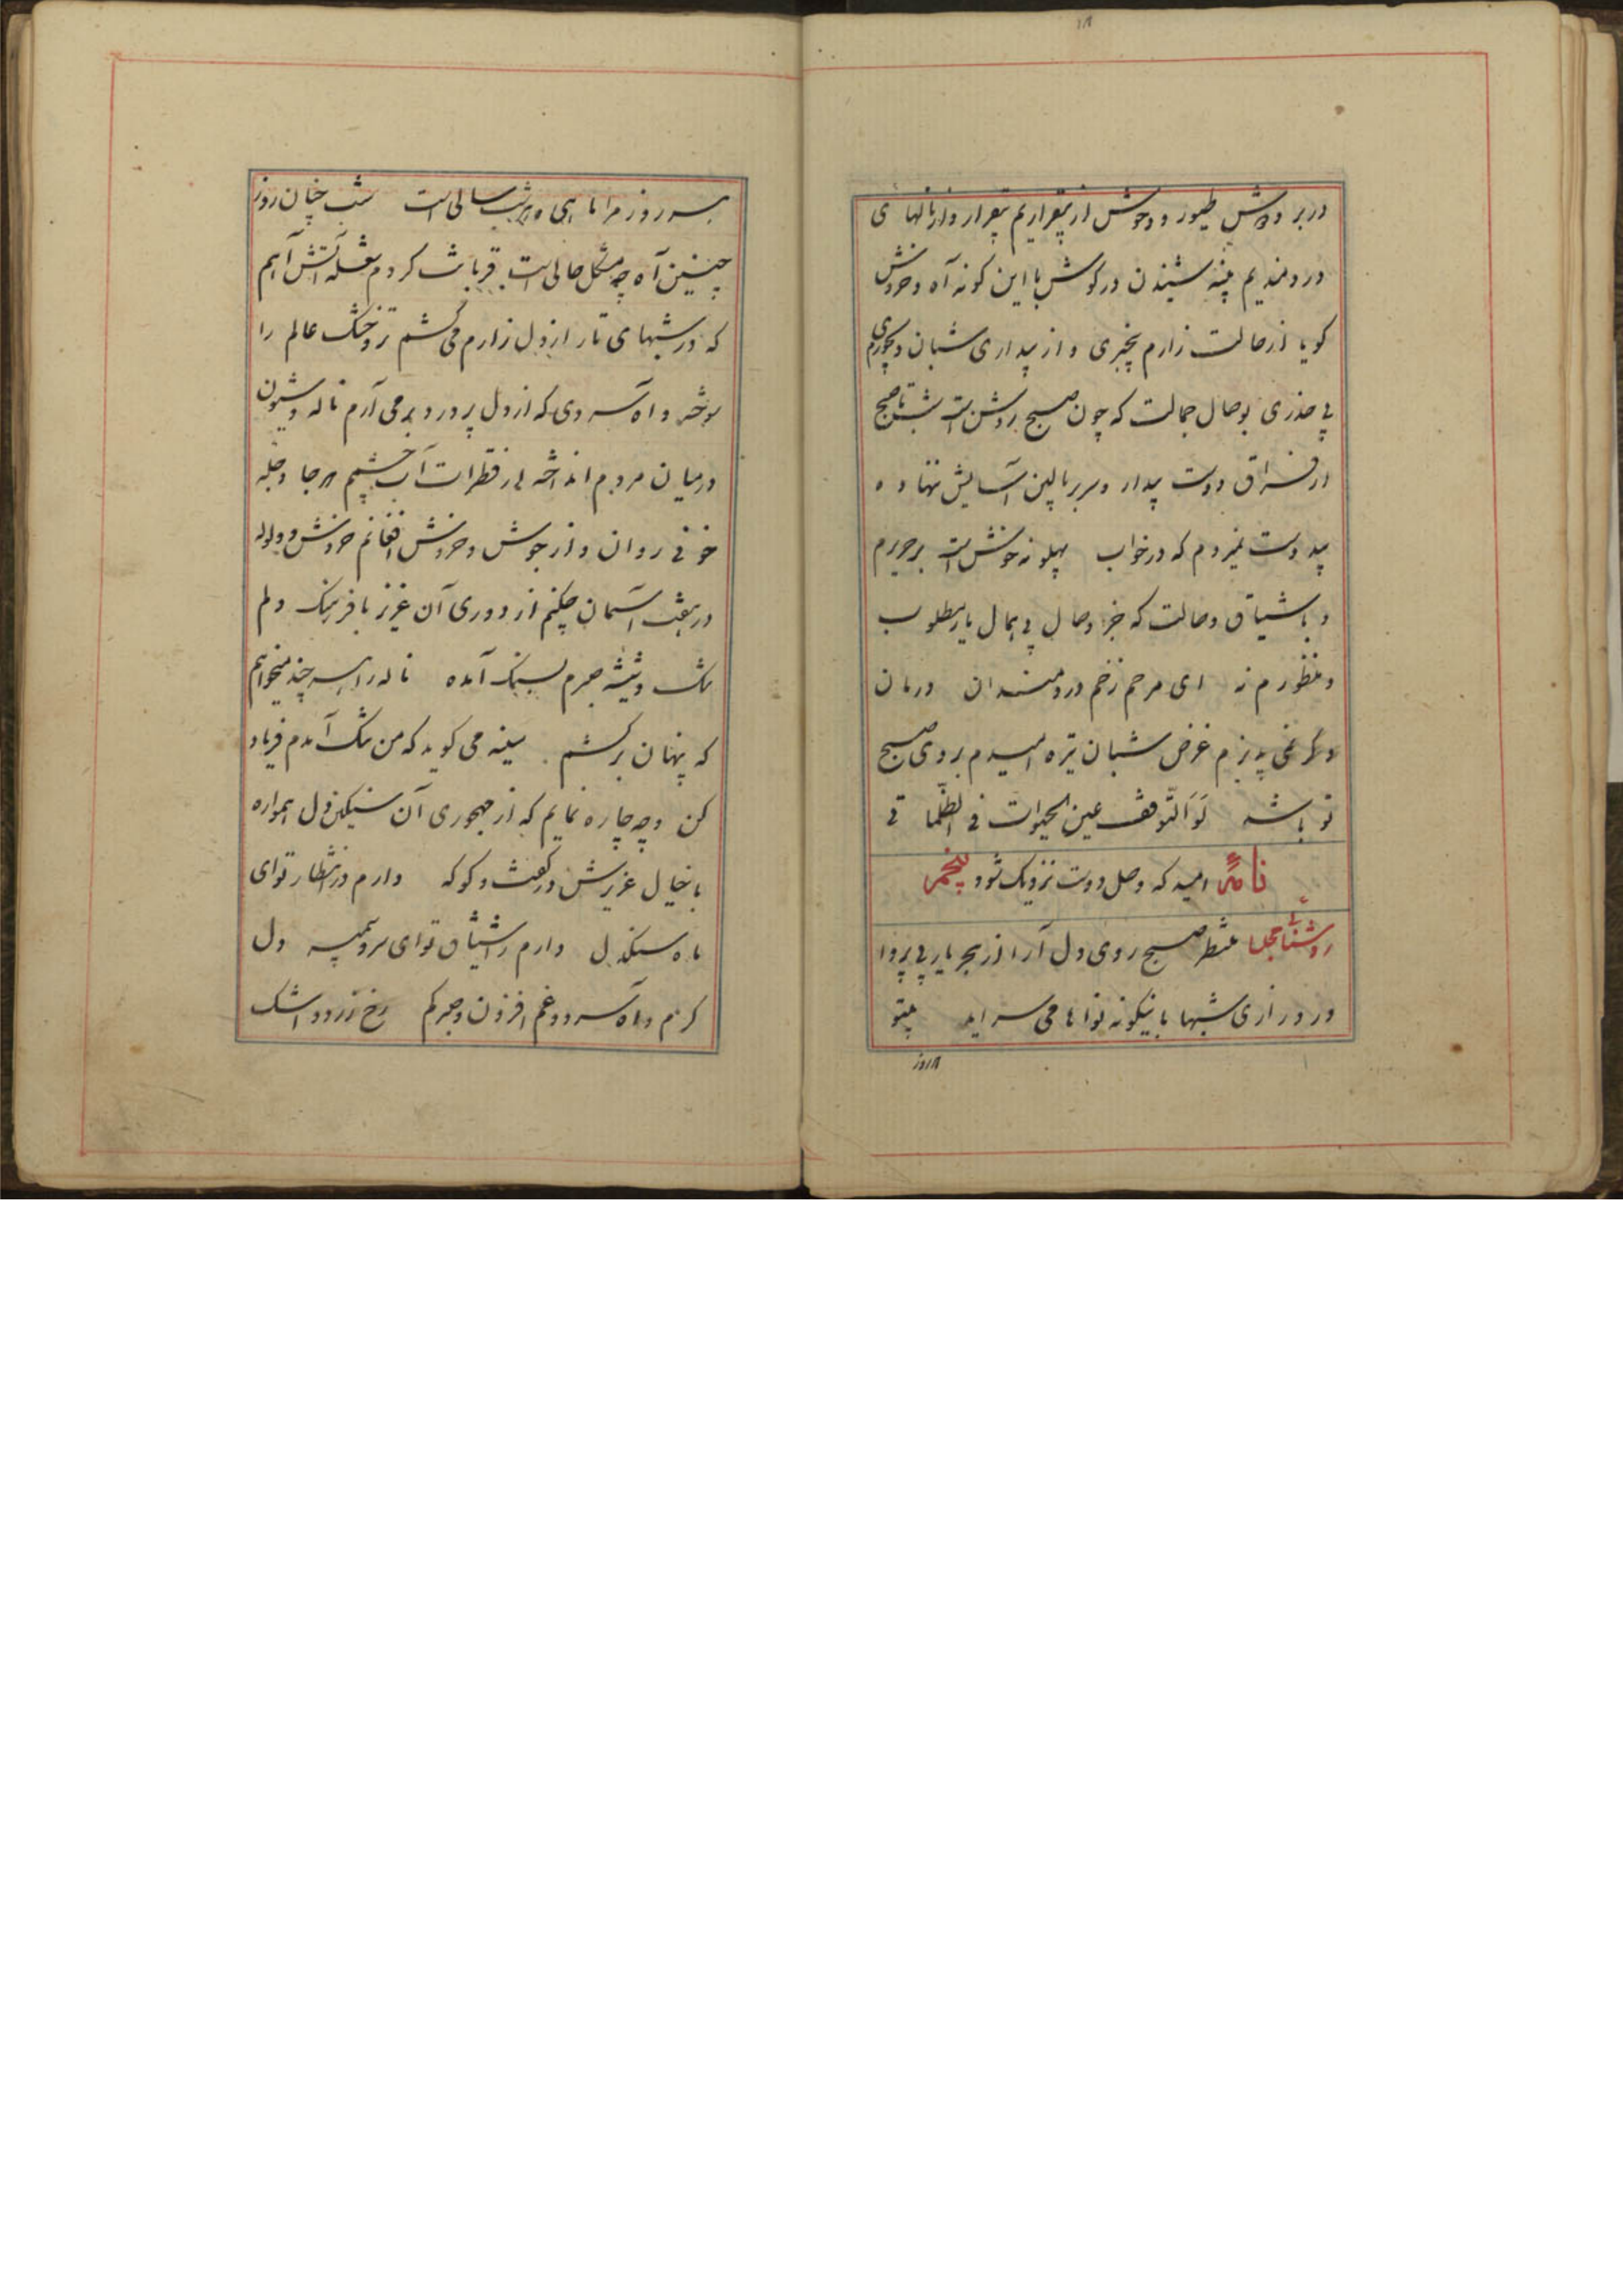 در بر و دوش طیور و وحوش از بیقراریم بیقرار و از نالهای
دردمندیم پنبه شنیدن در گوش با این کونه آه و خروش
کویا از حالت زارم بیخبری و از بیداری شبان دیجوری
بی حذری بوصال جمالت که چون صبح روشن است شب تا صبح
از فراق دوست بیدار و سر ببالین آسایش ننهاده
بیدوست نمیروم که در خواب پهلو نه خوش است بر حریرم
و باشتیاق وصالت که جز وصال بی همال یار مطلوب
و منظورم نه ای مرحم زخم دردمندان درمان
دگر نمی پذیرم غرض شبان تیره امیدم بروی صبح
تو باشد عین الحیوات فی الظلماتی
نامهٔ امید که وصل دوست نزدیک شود پنجم
منتظر صبح روی دل آرا از هجر یار بی پروا
در درازی شبها باینکونه نواها می سراید بیتو
هر روز
هر روز مرا ماهی و هر شب سالی است شب چنان روز
چنین آه چه مشکل حالی است قربانت کردم شعله آتش آهم
که در شبهای تار از دل زارم می کشم تر و خشک عالم را
سوخته و آه سردی که از دل پر درد بر می آرم ناله و شیون
در میان مردم انداخته از قطرات آب چشمم هر جا دجله
خونی روان و از جوش و خروش افغانم خروش و ولوله
در هفت آسمان چکنم از دوری آن عزیز با فرهنک دلم
تنک و شیشه صبرم بسنک آمده ناله را هر چند میخواهم
که پنهان برکشم سینه می کوید که من تنک آمدم فریاد
کن و چه چاره نمایم که از مهجوری آن سنیکن دل همواره
با خیال عزیزش در کفت و کو که دارم در انتظار تو ای
ماه سنکدل دارم ز اشتیاق تو ای سرو سیمبر دل
کرم و آه سرد و غم افزون و صبر کم رخ زرد و اشک